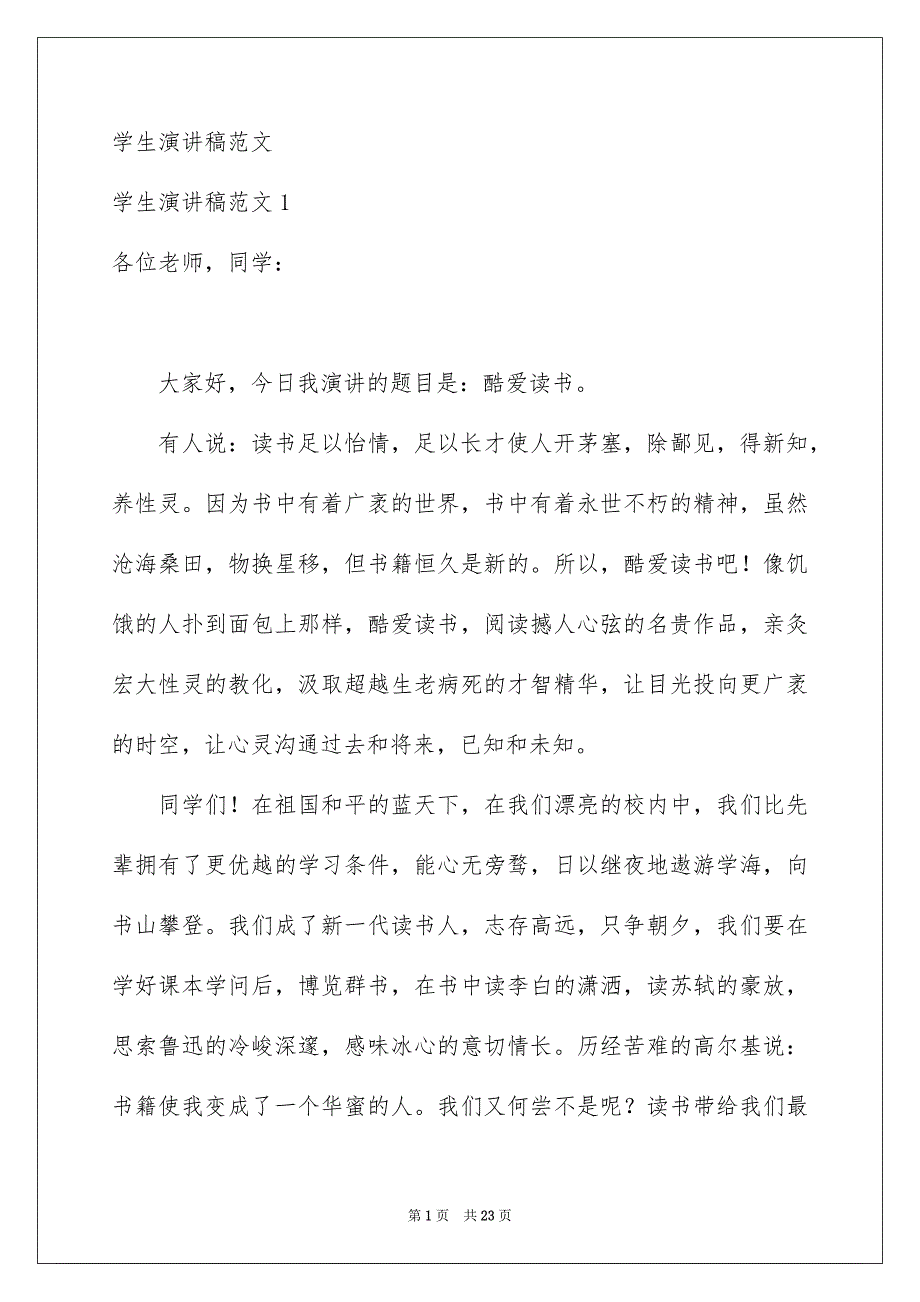 学生演讲稿范文
学生演讲稿范文 1
各位老师，同学：
大家好，今日我演讲的题目是：酷爱读书。
有人说：读书足以怡情，足以长才使人开茅塞，除鄙见，得新知，
养性灵。因为书中有着广袤的世界，书中有着永世不朽的精神，虽然
沧海桑田，物换星移，但书籍恒久是新的。所以，酷爱读书吧！像饥
饿的人扑到面包上那样，酷爱读书，阅读撼人心弦的名贵作品，亲灸
宏大性灵的教化，汲取超越生老病死的才智精华，让目光投向更广袤
的时空，让心灵沟通过去和将来，已知和未知。
同学们！在祖国和平的蓝天下，在我们漂亮的校内中，我们比先
辈拥有了更优越的学习条件，能心无旁骛，日以继夜地遨游学海，向
书山攀登。我们成了新一代读书人，志存高远，只争朝夕，我们要在
学好课本学问后，博览群书，在书中读李白的潇洒，读苏轼的豪放，
思索鲁迅的冷峻深邃，感味冰心的意切情长。历经苦难的高尔基说：
书籍使我变成了一个华蜜的人。我们又何尝不是呢？读书带给我们最
第 1 页 共 23 页